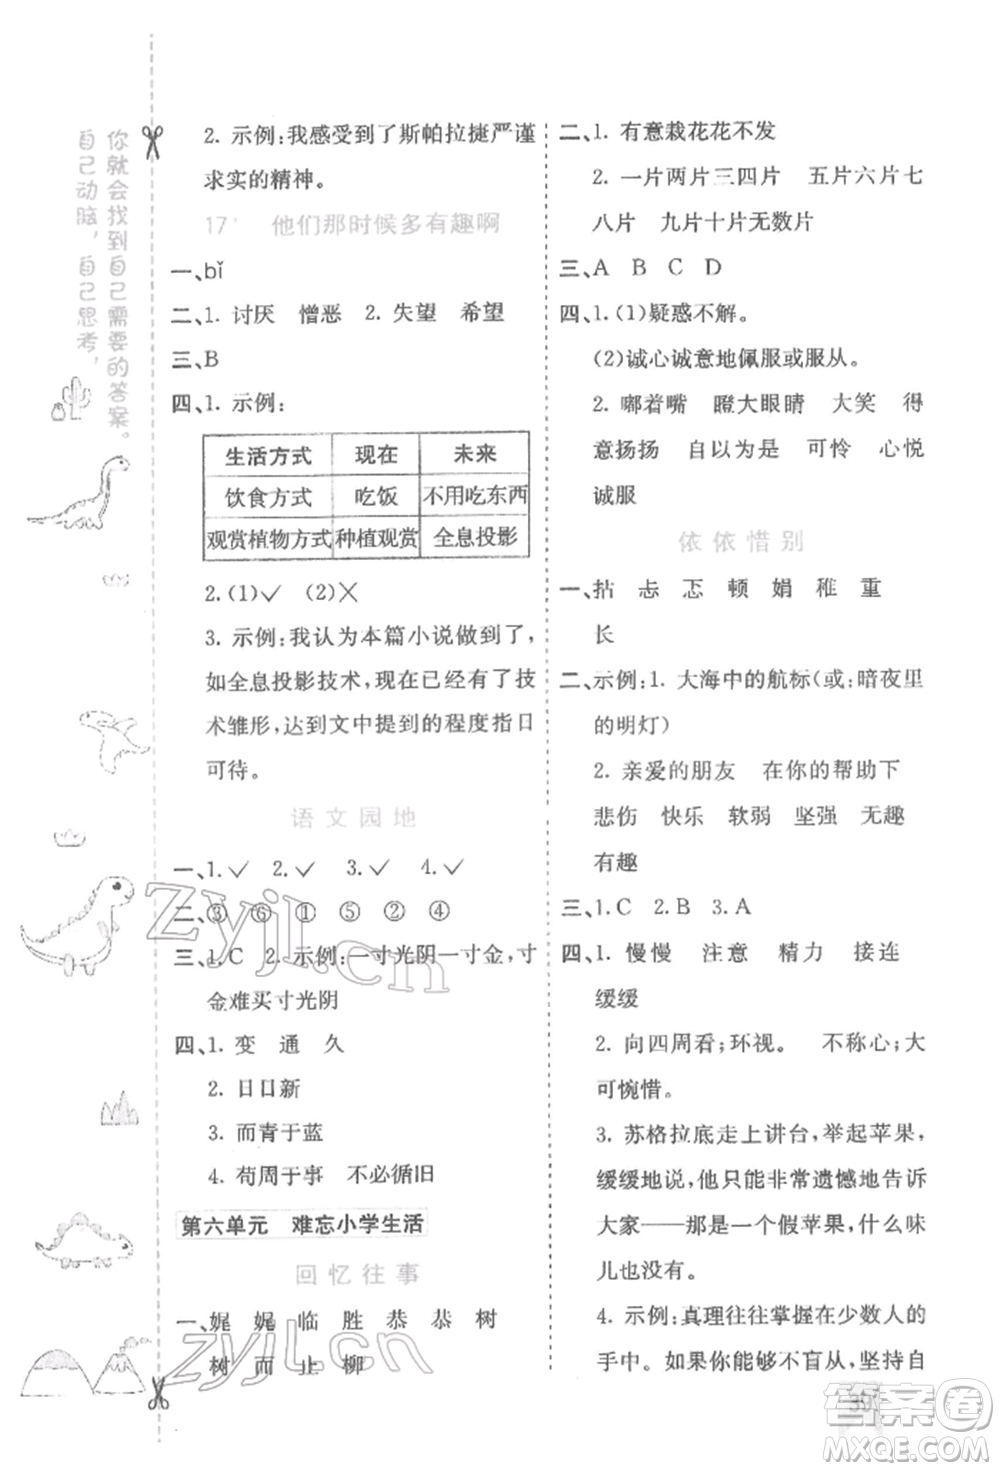 你就会找到自己需要的答案。
自己动脑，自己思考，
2. 示例:我感受到了斯帕拉捷严谨
求实的精神。
17* 他们那时候多有趣啊
一、bǐ
二、1. 讨厌 憎恶 2. 失望 希望
三、B
四、1. 示例:
生活方式 现在 未来
饮食方式 吃饭 不用吃东西
观赏植物方式 种植观赏 全息投影
2.(1)✓ (2)✕
3. 示例:我认为本篇小说做到了,
如全息投影技术,现在已经有了技
术雏形,达到文中提到的程度指日
可待。
语文园地
一、1.✓ 2.✓ 3.✓ 4.✓
二、③ ⑥ ① ⑤ ② ④
三、1.C 2. 示例:一寸光阴一寸金,寸
金难买寸光阴
四、1. 变 通 久
2. 日日新
3. 而青于蓝
4. 苟周于事 不必循旧
第六单元 难忘小学生活
回忆往事
一、娓 娓 临 胜 恭 恭 树
树 而 止 柳
二、1. 有意栽花花不发
2. 一片两片三四片 五片六片七
八片 九片十片无数片
三、A B C D
四、1.(1)疑惑不解。
(2)诚心诚意地佩服或服从。
2. 嘟着嘴 瞪大眼睛 大笑 得
意扬扬 自以为是 可怜 心悦
诚服
依依惜别
一、拈 忐 忑 顿 娟 稚 重
长
二、示例:1. 大海中的航标(或:暗夜里
的明灯)
2. 亲爱的朋友 在你的帮助下
悲伤 快乐 软弱 坚强 无趣
有趣
三、1.C 2.B 3.A
四、1. 慢慢 注意 精力 接连
缓缓
2. 向四周看;环视。 不称心;大
可惋惜。
3. 苏格拉底走上讲台,举起苹果,
缓缓地说,他只能非常遗憾地告诉
大家——那是一个假苹果,什么味
儿也没有。
4. 示例:真理往往掌握在少数人的
手中。如果你能够不盲从,坚持自
39
zyjl.cn
zyjl.cn
答案圈
MXQE.COM